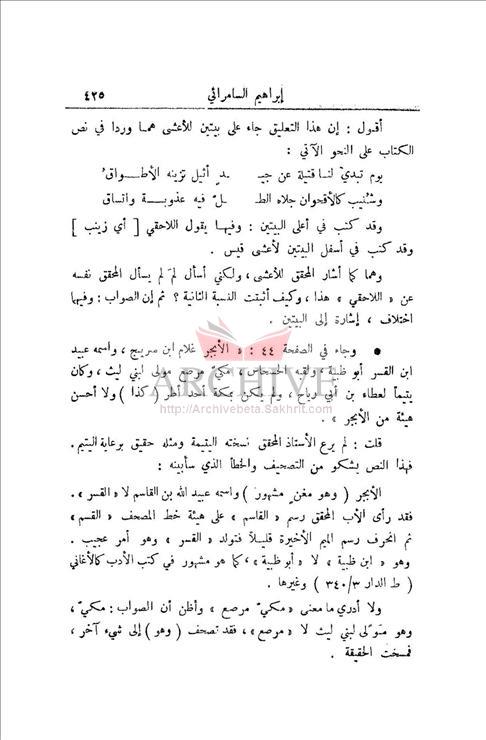 إبراهيم السامرائي
٤٢٥
أقول : إن هذا التعليق جاء على بيتين للأعشى هما وردا في نص
الكتاب على النحو الآتي :
يوم تبدي لنا قتيلة عن جيـ ـدٍ أثيل تزينه الأطــواقُ
وشَنيب كالأقحوان جلاه الطـ ـلّ فيه عذوبــة واتساق
وقد كتب في أعلى البيتين : وفيها يقول اللاحقي [ أي زينب ]
وقد كتب في أسفل البيتين لأعشى قيس .
وهما كما أشار المحقق للأعشى، ولكني أسأل لمَ لم يسأل المحقق نفسه
عن « اللاحقي » هذا ، وكيف أثبتت النسبة الثانية ؟ ثم إن الصواب : وفيها
اختلاف ، إشارة إلى البيتين .
● وجاء في الصفحة ٤٤ : « الأبجر غلام ابن سريج ، واسمه عبيد
ابن القسر أبو ظبية ، ولقبه الحسحاس ، مكيّ مرصع مولى لبني ليث، وكان
يتيماً لعطاء بن أبي رباح، ولم يكن بمكة أحد أظر ( كذا ) ولا أحسن
هيئة من الأبجر » .
ARCHIVE
http://Archivebeta.Sakhrit.com
قلت : لم يرع الأستاذ المحقق نسخته اليتيمة ومثله حقيق برعاية اليتيم.
فهذا النص يشكو من التصحيف والخطأ الذي سأبينه :
الأبجر ( وهو مغنٍ مشهور ) واسمه عبيد الله بن القاسم لا « القسر » .
فقد رأى الأب المحقق رسم « القاسم » على هيئة خط المصحف « القسم »
ثم انحرف رسم الميم الأخيرة قليلاً فتولد « القسر » وهو أمر عجيب .
وهو « ابن ظبية » لا « أبو ظبية »، كما هو مشهور في كتب الأدب كالأغاني
( ط الدار ٣٤٠/٣ ) وغيرها .
ولا أدري ما معنى « مكيّ مرصع » وأظن أن الصواب : مكيّ ،
وهو مَوْلى لبني ليث لا « مرصع »، فقد تصحف ( وهو ) إلى شيء آخر ،
فمسخت الحقيقة .